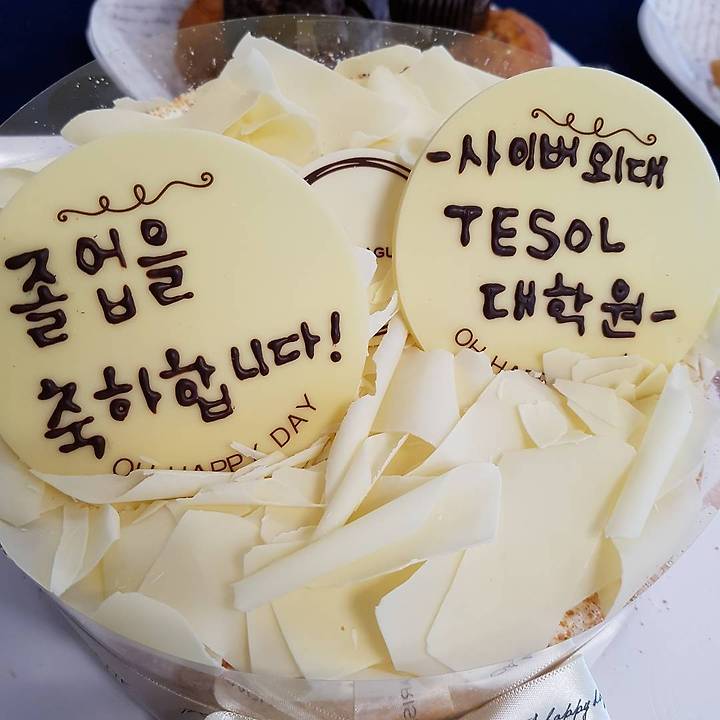 졸업을
축하합니다!
OH HAPPY DAY
-사이버외대
TESOL
대학원-
OH HA
AGU
happy